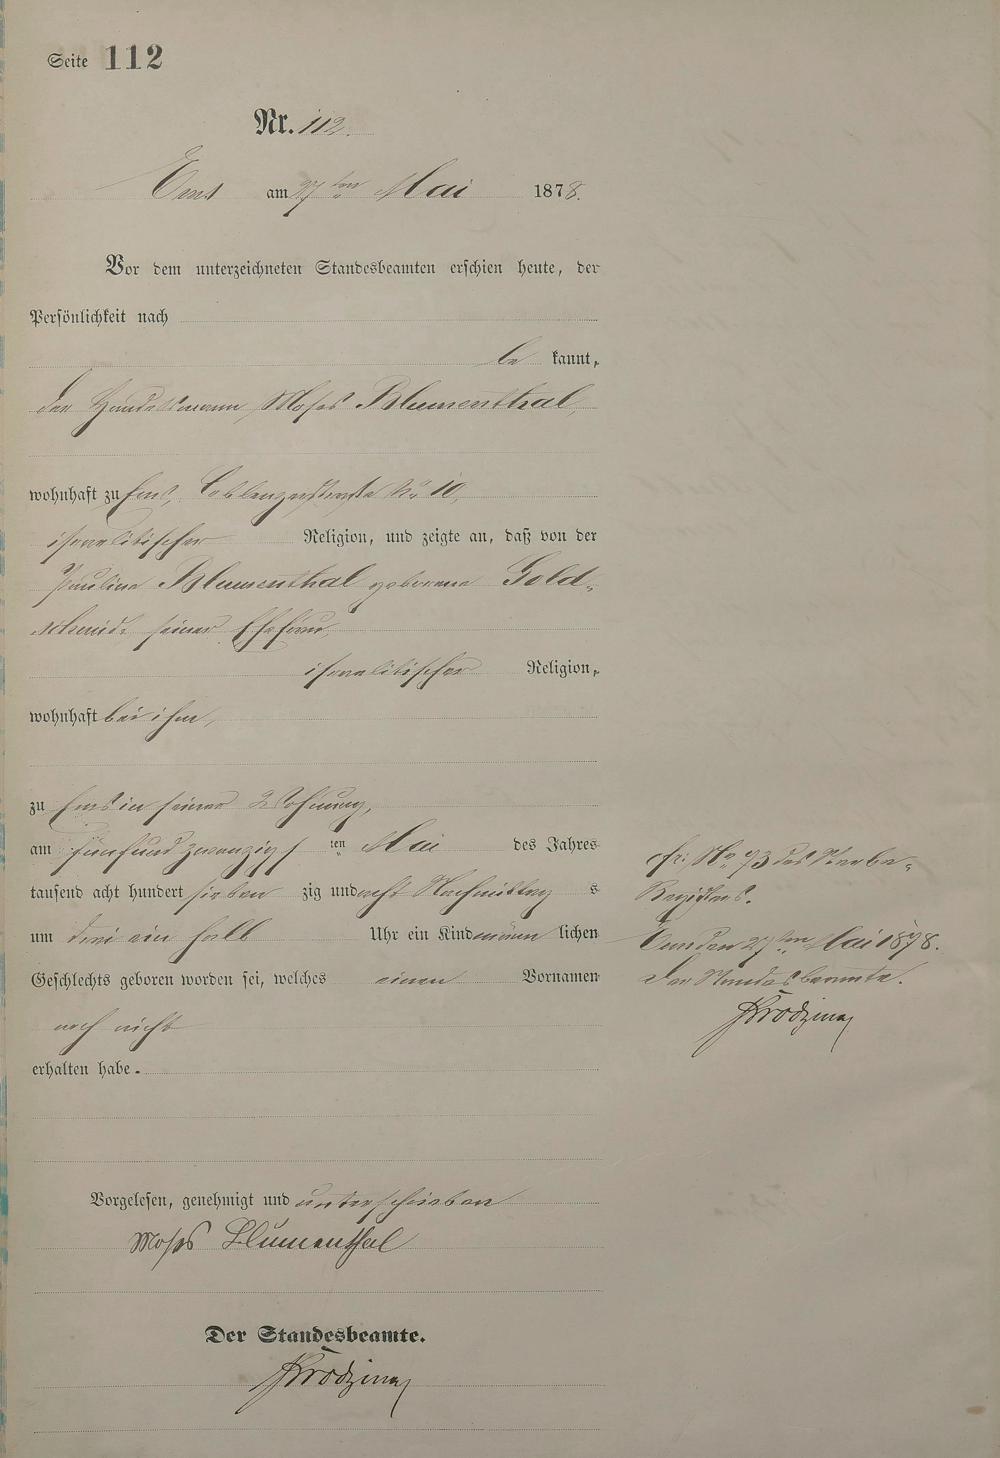 Seite 112
Nr. 112.
Ems am 27ten Mai 1878.
Vor dem unterzeichneten Standesbeamten erschien heute, der
Persönlichkeit nach
be kannt,
der Handelsmann Moses Blumenthal,
wohnhaft zu Ems, Coblenzerstraße No 10,
israelitischer Religion, und zeigte an, daß von der
Pauline Blumenthal geborene Gold-
schmidt seiner Ehefrau,
israelitischer Religion,
wohnhaft bei ihm,
zu Ems in seiner Wohnung,
am fünfundzwanzigsten Mai des Jahres
tausend acht hundert sieben zig und acht Nachmittag s
um drei ein halb Uhr ein Kind männ lichen
Geschlechts geboren worden sei, welches einen Vornamen
noch nicht
erhalten habe.
Vorgelesen, genehmigt und unterschrieben
Moses Blumenthal
Der Standesbeamte.
cfr: No 73 des Sterbe-
Registers.
Ems den 27ten Mai 1878.
Der Standesbeamte.